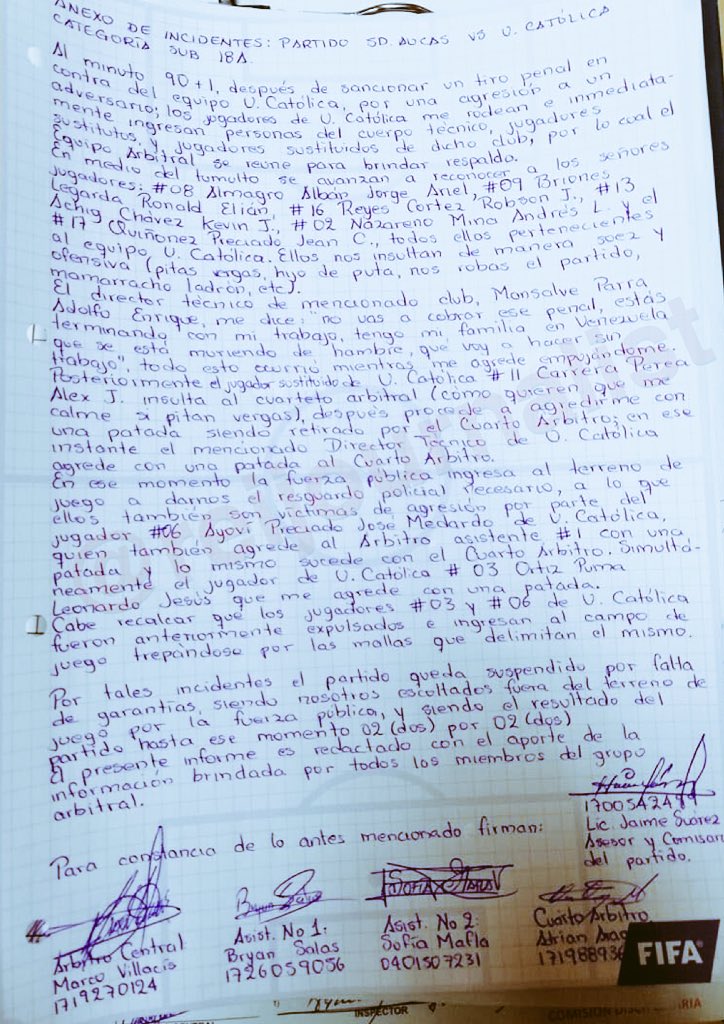 ANEXO DE INCIDENTES: PARTIDO SD. AUCAS VS U. CATÓLICA
CATEGORÍA SUB 18A.
Al minuto 90+1, después de sancionar un tiro penal en
contra del equipo U. Católica, por una agresión a un
adversario; los jogadores de U. Católica me rodean e inmediata-
mente ingresan personas del cuerpo técnico, jugadores
sustitutos, y jugadores sustituidos de dicho club, por lo cual el
Equipo Arbitral se reune para brindar respaldo.
En medio del tumulto se avanzan a reconocer a los señores
jugadores: #08 Almagro Albán Jorge Ariel, #09 Briones
Legarda Ronald Elián, #16 Reyes Cortez Robson J., #13
Achig Chávez Kevin J., #02 Nazareno Mina Andrés L. y el
#17 Quiñonez Preciado Jean C., todos ellos pertenecientes
al equipo U. Católica. Ellos nos insultan de manera soez y
ofensiva (pitas vergas, hijo de puta, nos robas el partido,
mamarracho ladrón, etc).
El director técnico de mencionado club, Monsalve Parra
Adolfo Enrique, me dice: "no vas a cobrar ese penal, estás
terminando con mi trabajo, tengo mi familia en Venezuela
que se está muriendo de hambre, que voy a hacer sin
trabajo", todo esto ocurrió mientras me agrede empujándome.
Posteriormente el jugador sustituido de U. Católica #11 Carrera Perea
Alex J. insulta al cuarteto arbitral (cómo quieren que me
calme si pitan vergas), después procede a agredirme con
una patada siendo retirado por el Cuarto Árbitro; en ese
instante el mencionado Director Técnico de U. Católica
agrede con una patada al Cuarto Árbitro.
En ese momento la fuerza pública ingresa al terreno de
juego a darnos el resguardo policial necesario, a lo que
ellos también son víctimas de agresión por parte del
jugador #06 Ayoví Preciado Jose Medardo de U. Católica,
quien también agrede al Árbitro asistente #1 con una
patada y lo mismo sucede con el Cuarto Árbitro. Simultá-
neamente el jugador de U. Católica #03 Ortiz Puma
Leonardo Jesús que me agrede con una patada.
Cabe recalcar que los jugadores #03 y #06 de U. Católica
fueron anteriormente expulsados e ingresan al campo de
juego trepándose por las mallas que delimitan el mismo.
Por tales incidentes el partido queda suspendido por falta
de garantías, siendo nosotros escoltados fuera del terreno de
juego por la fuerza pública, y siendo el resultado del
partido hasta ese momento 02 (dos) por 02 (dos)
El presente informe es redactado con el aporte de la
información brindada por todos los miembros del grupo
arbitral.
Para constancia de lo antes mencionado firman:
Lic. Jaime Suárez
Asesor y Comisari
del partido.
Árbitro Central
Marco Villacis
1719270124
Asist. No 1:
Bryan Salas
1726059056
Asist. No 2:
Sofía Mafla
0401507231
Cuarto Árbitro
Adrian
FIFA
INSPECTOR